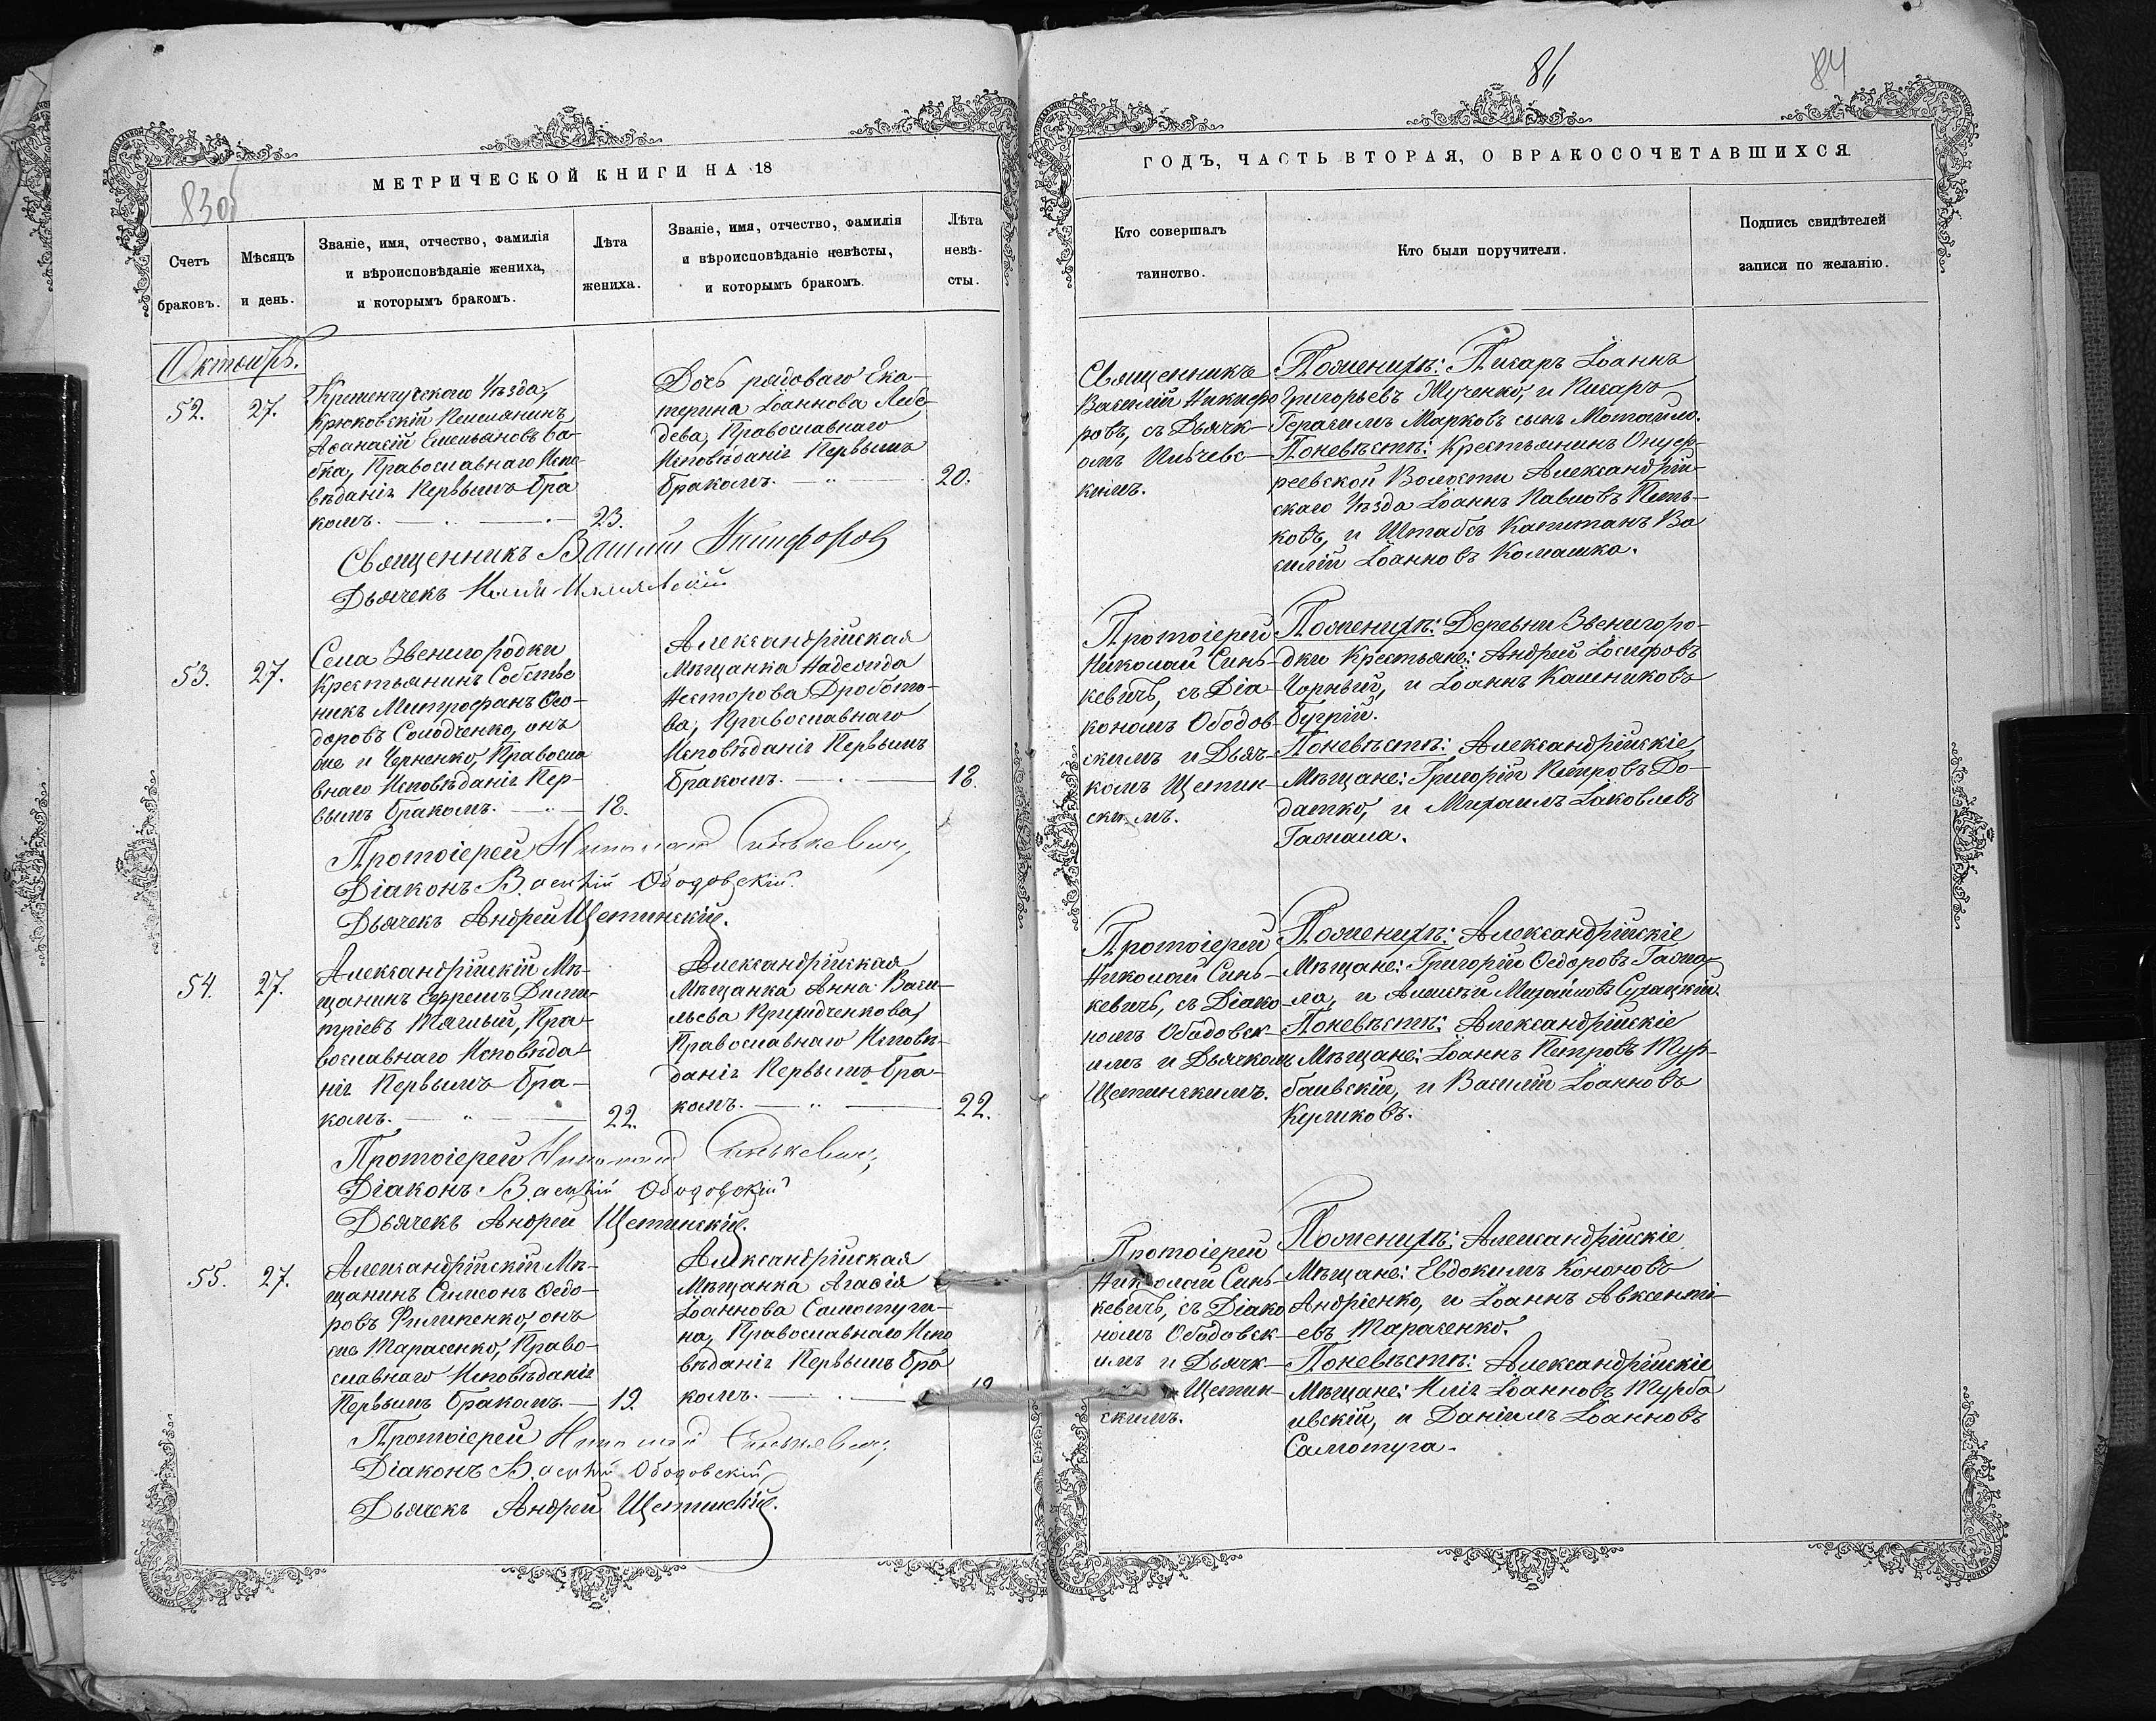 86
84
83об
МЕТРИЧЕСКОЙ КНИГИ НА 18
Счетъ
браковъ.
Мѣсяцъ
и день.
Званіе, имя, отчество, фамилія
и вѣроисповѣданіе жениха,
и которымъ бракомъ.
Лѣта
жениха.
Званіе, имя, отчество, фамилія
и вѣроисповѣданіе невѣсты,
и которымъ бракомъ.
Лѣта
невѣ-
сты.
Октоибрь.
52.
27.
Кременчугскаго Уѣзда,
Крюковскій Пишанинъ
Аѳанасій Емельяновъ Ба-
бка, Православнаго Испо-
вѣданія Первымъ бра
комъ.
23.
Дочь рядоваго Ека-
терина Іоаннова Лебе-
дева, Православнаго
Исповѣданія Первымъ
бракомъ.
20.
Священникъ Василій Никифоровъ
Дьячекъ
53.
27.
Села Звенигородки
Крестьянинъ Собстве
никъ Митрофанъ Ѳео-
доровъ Солодченко, онъ
же и Черненко, Правосла
внаго Исповѣданія Пер-
вымъ бракомъ.
18.
Александрійская
Мѣщанка Надежда
Несторова Дробото-
ва, Православнаго
Исповѣданія Первымъ
бракомъ.
18.
Протоіерей Николай Синькевичъ
Діаконъ Василій Ободовскій.
Дьячекъ Андрей Щетинскій.
54.
27.
Александрійскій Мѣ-
щанинъ Ефремъ Дими-
тріевъ Тяглый, Пра-
вославнаго Исповѣда-
нія Первымъ бра-
комъ.
22.
Александрійская
Мѣщанка Анна Васи-
льева Приходченкова,
Православнаго Исповѣ-
данія Первымъ бра-
комъ.
22.
Протоіерей Николай Синькевичъ
Діаконъ Василій Ободовскій
Дьячекъ Андрей Щетинскій.
55.
27.
Александрійскій Мѣ-
щанинъ Симеонъ Ѳедо-
ровъ Филипенко, онъ
же Тарасенко, Право-
славнаго Исповѣданія
Первымъ бракомъ.
19.
Александрійская
Мѣщанка Агаѳія
Іоаннова Самотуги-
на, Православнаго Испо
вѣданія Первымъ бра
комъ.
Протоіерей Николай Синькевичъ
Діаконъ Василій Ободовскій
Дьячекъ Андрей Щетинскій.
ГОДЪ, ЧАСТЬ ВТОРАЯ, О БРАКОСОЧЕТАВШИХСЯ.
Кто совершалъ
таинство.
Кто были поручители.
Подпись свидѣтелей
записи по желанію.
Священникъ
Василій Никифо
ровъ, съ Дьячк-
омъ Ильчевс-
кимъ.
Поженихѣ: Писарь Іоаннъ
Григорьевъ Жученко, и Писарь
Герасимъ Марковъ сынъ Мотайло.
Поневѣстѣ: Крестьянинъ Онуф-
реевской Волости Александрій-
скаго Уѣзда Іоаннъ Павловъ Петь-
ковъ, и Штабсъ Капитанъ Ва
силій Іоанновъ Комашко.
Протоіерей
Николай Синь-
кевичъ, съ Діа-
кономъ Ободов-
скимъ и Дьяч-
комъ Щетин-
скимъ.
Поженихѣ: Деревни Звенигоро-
дки Крестьяне: Андрей Іосифовъ
Чорный, и Іоаннъ Калениковъ
Бугрій.
Поневѣстѣ: Александрійскіе
Мѣщане: Григорій Петровъ До-
датко, и Михаилъ Іаковлевъ
Гасиала.
Протоіерей
Николай Синь-
кевичъ, съ Діако
номъ Ободовск-
имъ и Дьячкомъ
Щетинскимъ.
Поженихѣ: Александрійскіе
Мѣщане: Григорій Ѳедоровъ
ла, и Алексѣй Михайловъ Сухацкій.
Поневѣстѣ: Александрійскіе
Мѣщане: Іоаннъ Петровъ Тур-
баивскій, и Василій Іоанновъ
Куликовъ.
Протоіерей
Николай Синь-
кевичъ, съ Діако
номъ Ободовск-
имъ и Дьячк-
Щетин-
скимъ.
Поженихѣ: Александрійскіе
Мѣщане: Евдокимъ Кононовъ
Андріенко, и Іоаннъ Авксенті-
евъ Тарасенко.
Поневѣстѣ: Александрійскіе
Мѣщане: Илія Іоанновъ Турба
ивскій, и Даніилъ Іоанновъ
Самотуга.